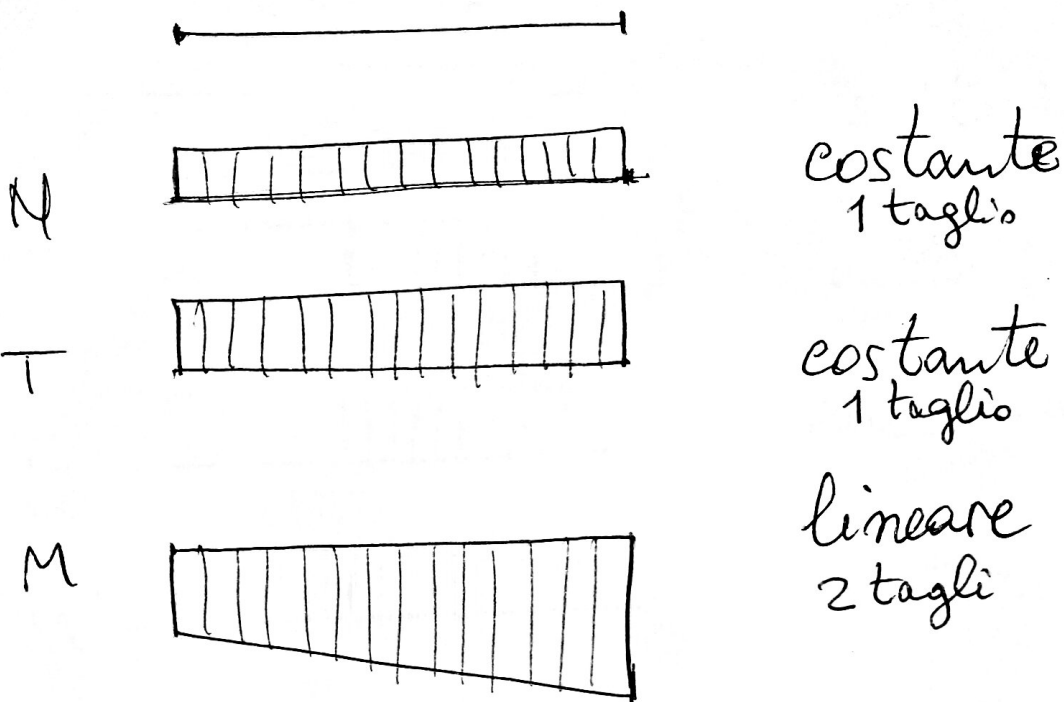 N
costante
1 taglio
T
costante
1 taglio
M
lineare
2 tagli